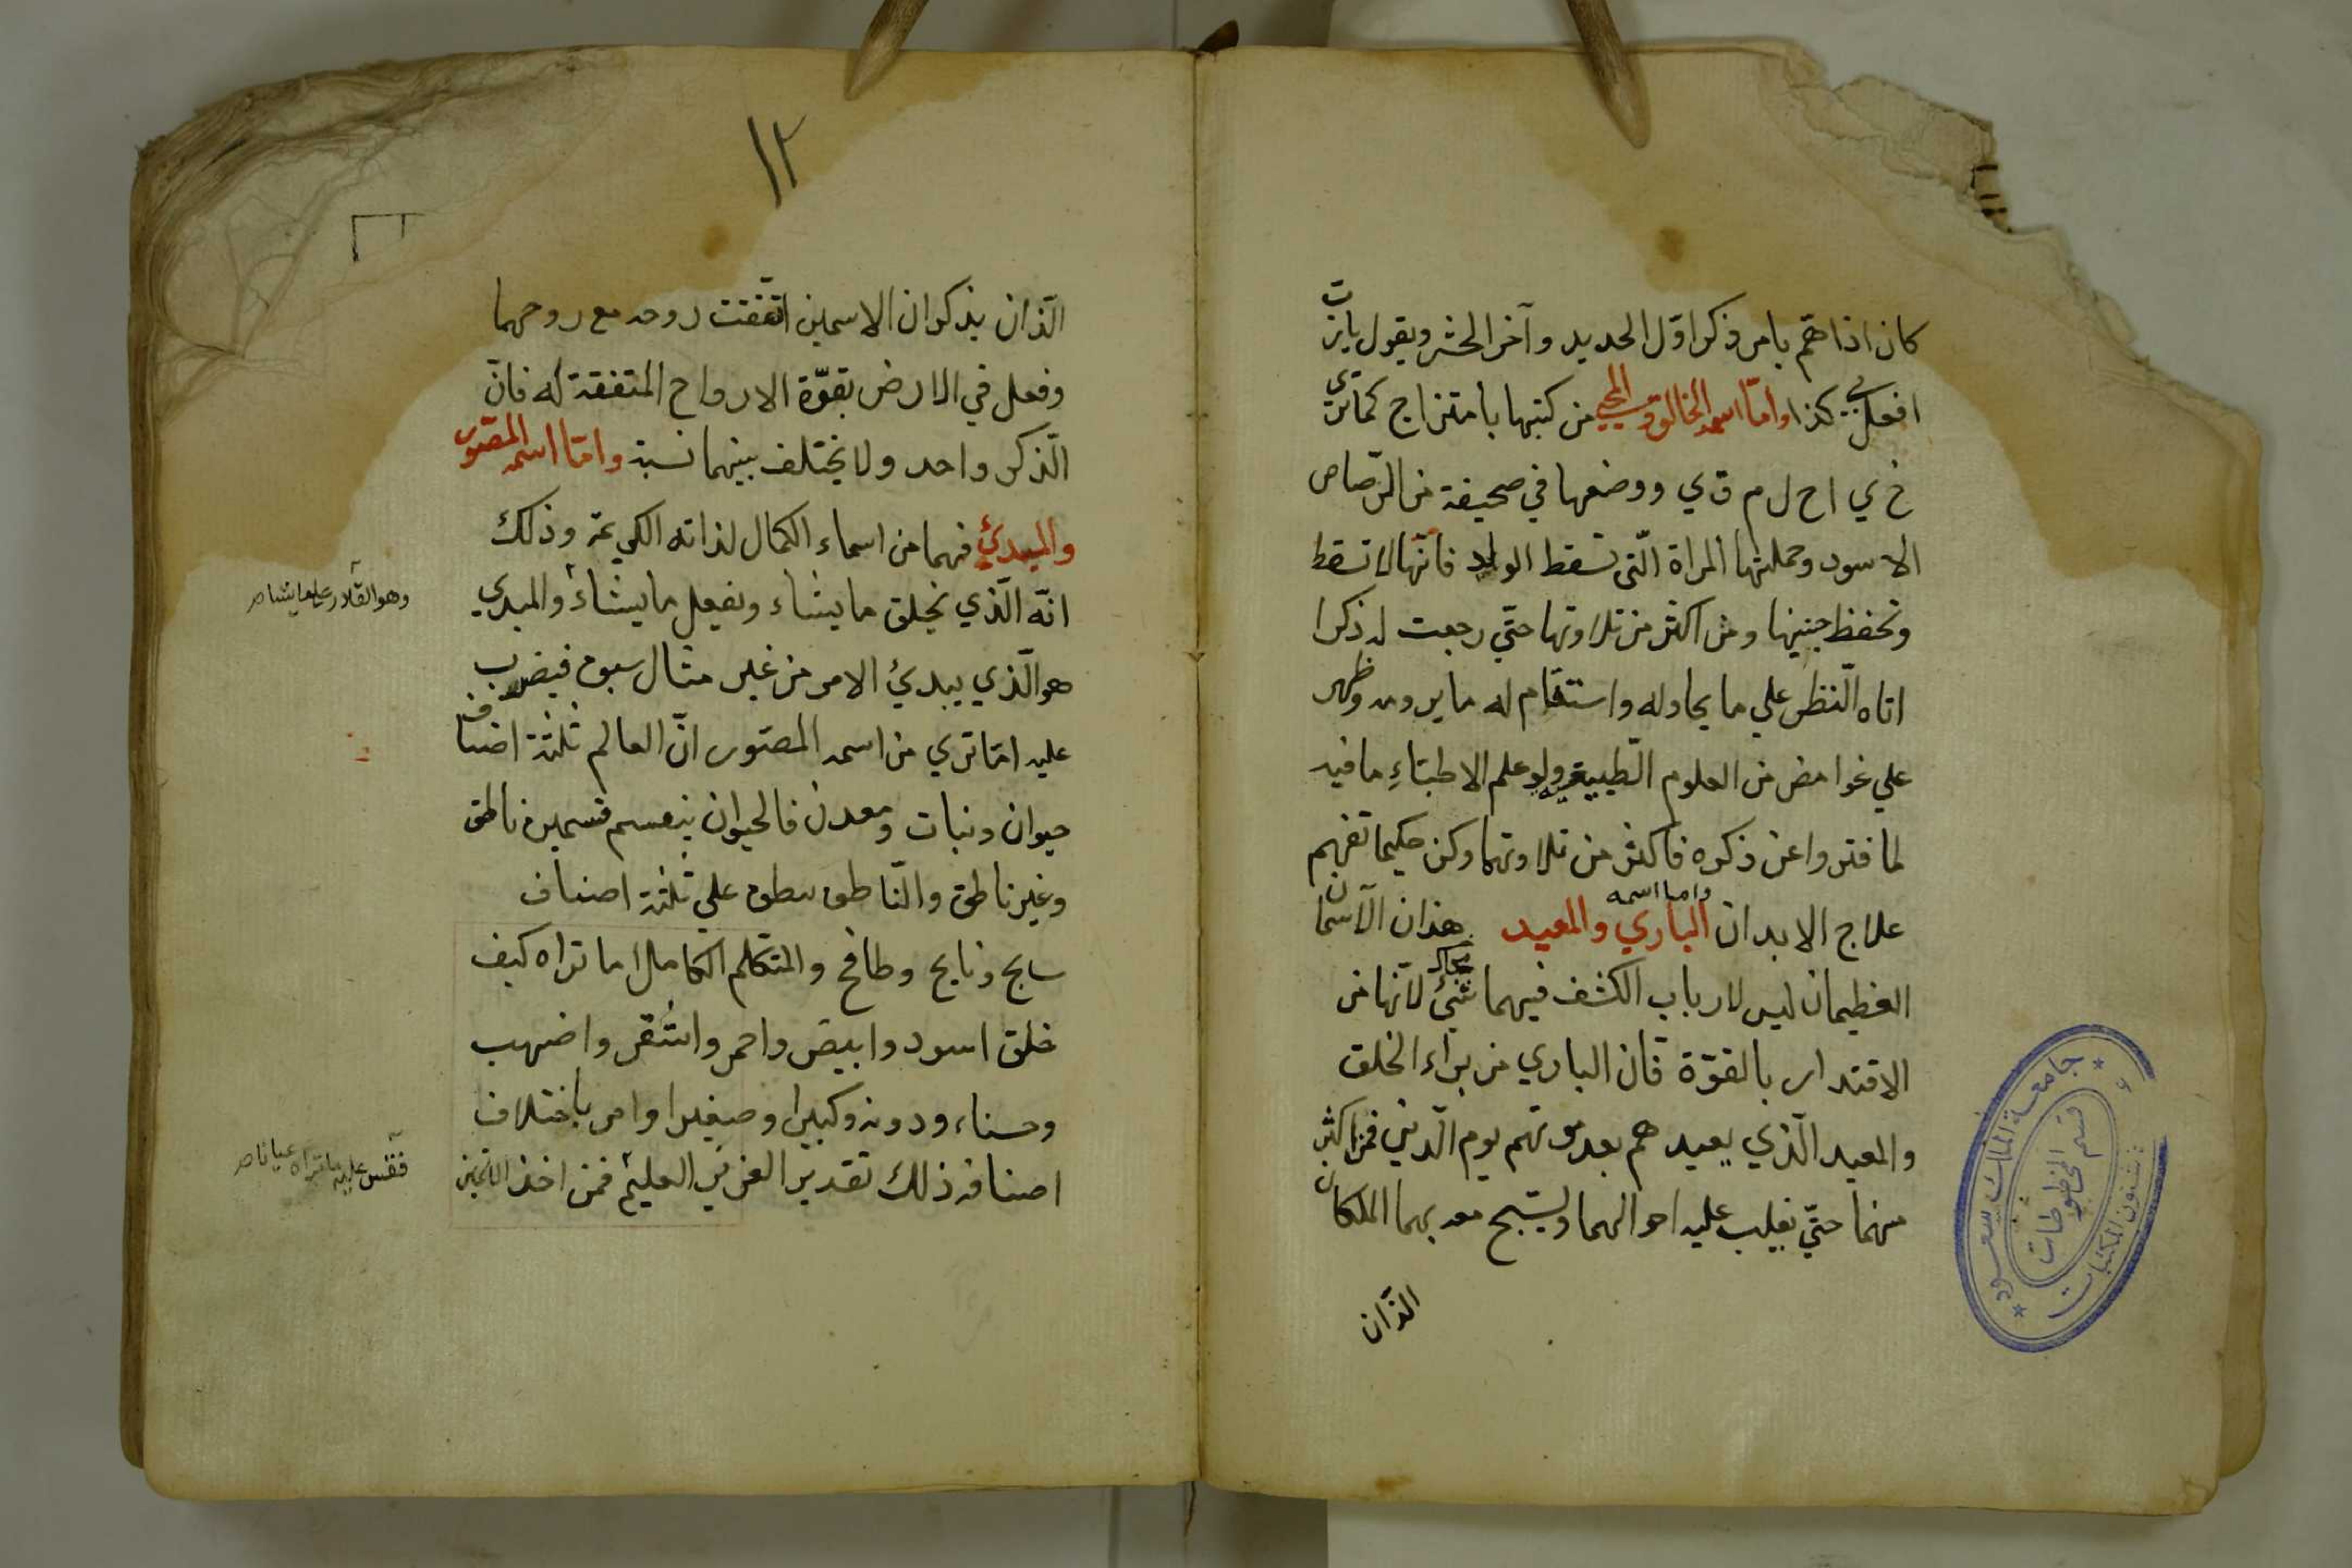 كان اذا همّ بامر ذكر اوّل الحديد وآخر الحشر ويقول ياربّ
افعل بي كذا وامّا اسمه الخالق والمحيي من كتبها بامتزاج كما تري
خ ي ا ح ل م ق ي ووضعها في صحيفة من الرّصاص
الاسود وحملتها المراة الّتي تسقط الولد فانّها لا تسقط
وتحفظ جنينها ومن اكثر من تلاوتها حتّي رجعت له ذكرا
اتاه النّظر علي ما يحاوله واستقام له ما يرومه وظهر
علي غوامض من العلوم الطّبيبة ولو علم الاطبّاء ما فيه
لما فتروا عن ذكره فاكثر من تلاوتهما وكن حكيما تفهم
علاج الابدان واما اسمه الباري والمعيد هذان الاسمان
العظيمان ليس لارباب الكشف فيهما شئ لانّها من
الاقتدار بالقوّة فان الباري من براء الخلق
والمعيد الّذي يعيدهم بعد موتهم يوم الدّين فمن اكثر
منهما حتّي يغلب عليه احوالهما ويسبّح معه بهما الملكان
الّذان
١٢
الّذان يذكران الاسمين اتّفقت روحه مع روحهما
وفعل في الارض بقوّة الارواح المتفقة له فانّ
الذّكر واحد ولا يختلف بينهما نسبة وامّا اسمه المصّور
والمبدئ فهما من اسماء الكمال لذاته الكريمة وذلك
انّه الّذي يخلق ما يشاء ويفعل ما يشاء والمبدي
وهو القادر علي ما يشاء صح
هو الّذي يبدئ الامر من غير مثال سبق فيضرب
عليه امّا تري من اسمه المصّور انّ العالم ثلثة اصناف
حيوان ونبات ومعدن فالحيوان ينقسم قسمين ناطق
وغير ناطق والنّاطق ينطق علي ثلثة اصناف
سابح ونايح وطافح والمتكلم الكامل اما تراه كيف
خلق اسود وابيض واحمر واشقر واصهب
وحسناء ودونه وكبيرا وصغيرا وامر باختلاف
اصنافه ذلك تقدير العزيز العليم فمن اخذ
فقس عليه ما تراه عيانا صح
جامعة الملك سعود
قسم المخطوطات
شئون المكتبات